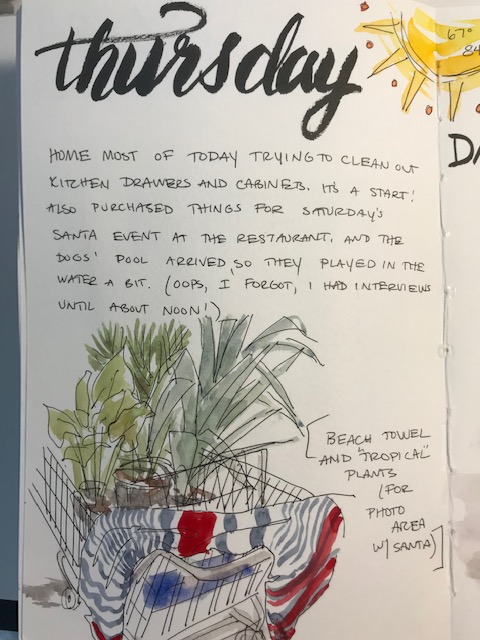 thursday
67°
84
DA
HOME MOST OF TODAY TRYING TO CLEAN OUT
KITCHEN DRAWERS AND CABINETS. IT'S A START!
ALSO PURCHASED THINGS FOR SATURDAY'S
SANTA EVENT AT THE RESTAURANT. AND THE
DOGS' POOL ARRIVED, SO THEY PLAYED IN THE
WATER A BIT. (OOPS, I FORGOT, I HAD INTERVIEWS
UNTIL ABOUT NOON!)
BEACH TOWEL
AND "TROPICAL"
PLANTS
(FOR
PHOTO
AREA
W/ SANTA)